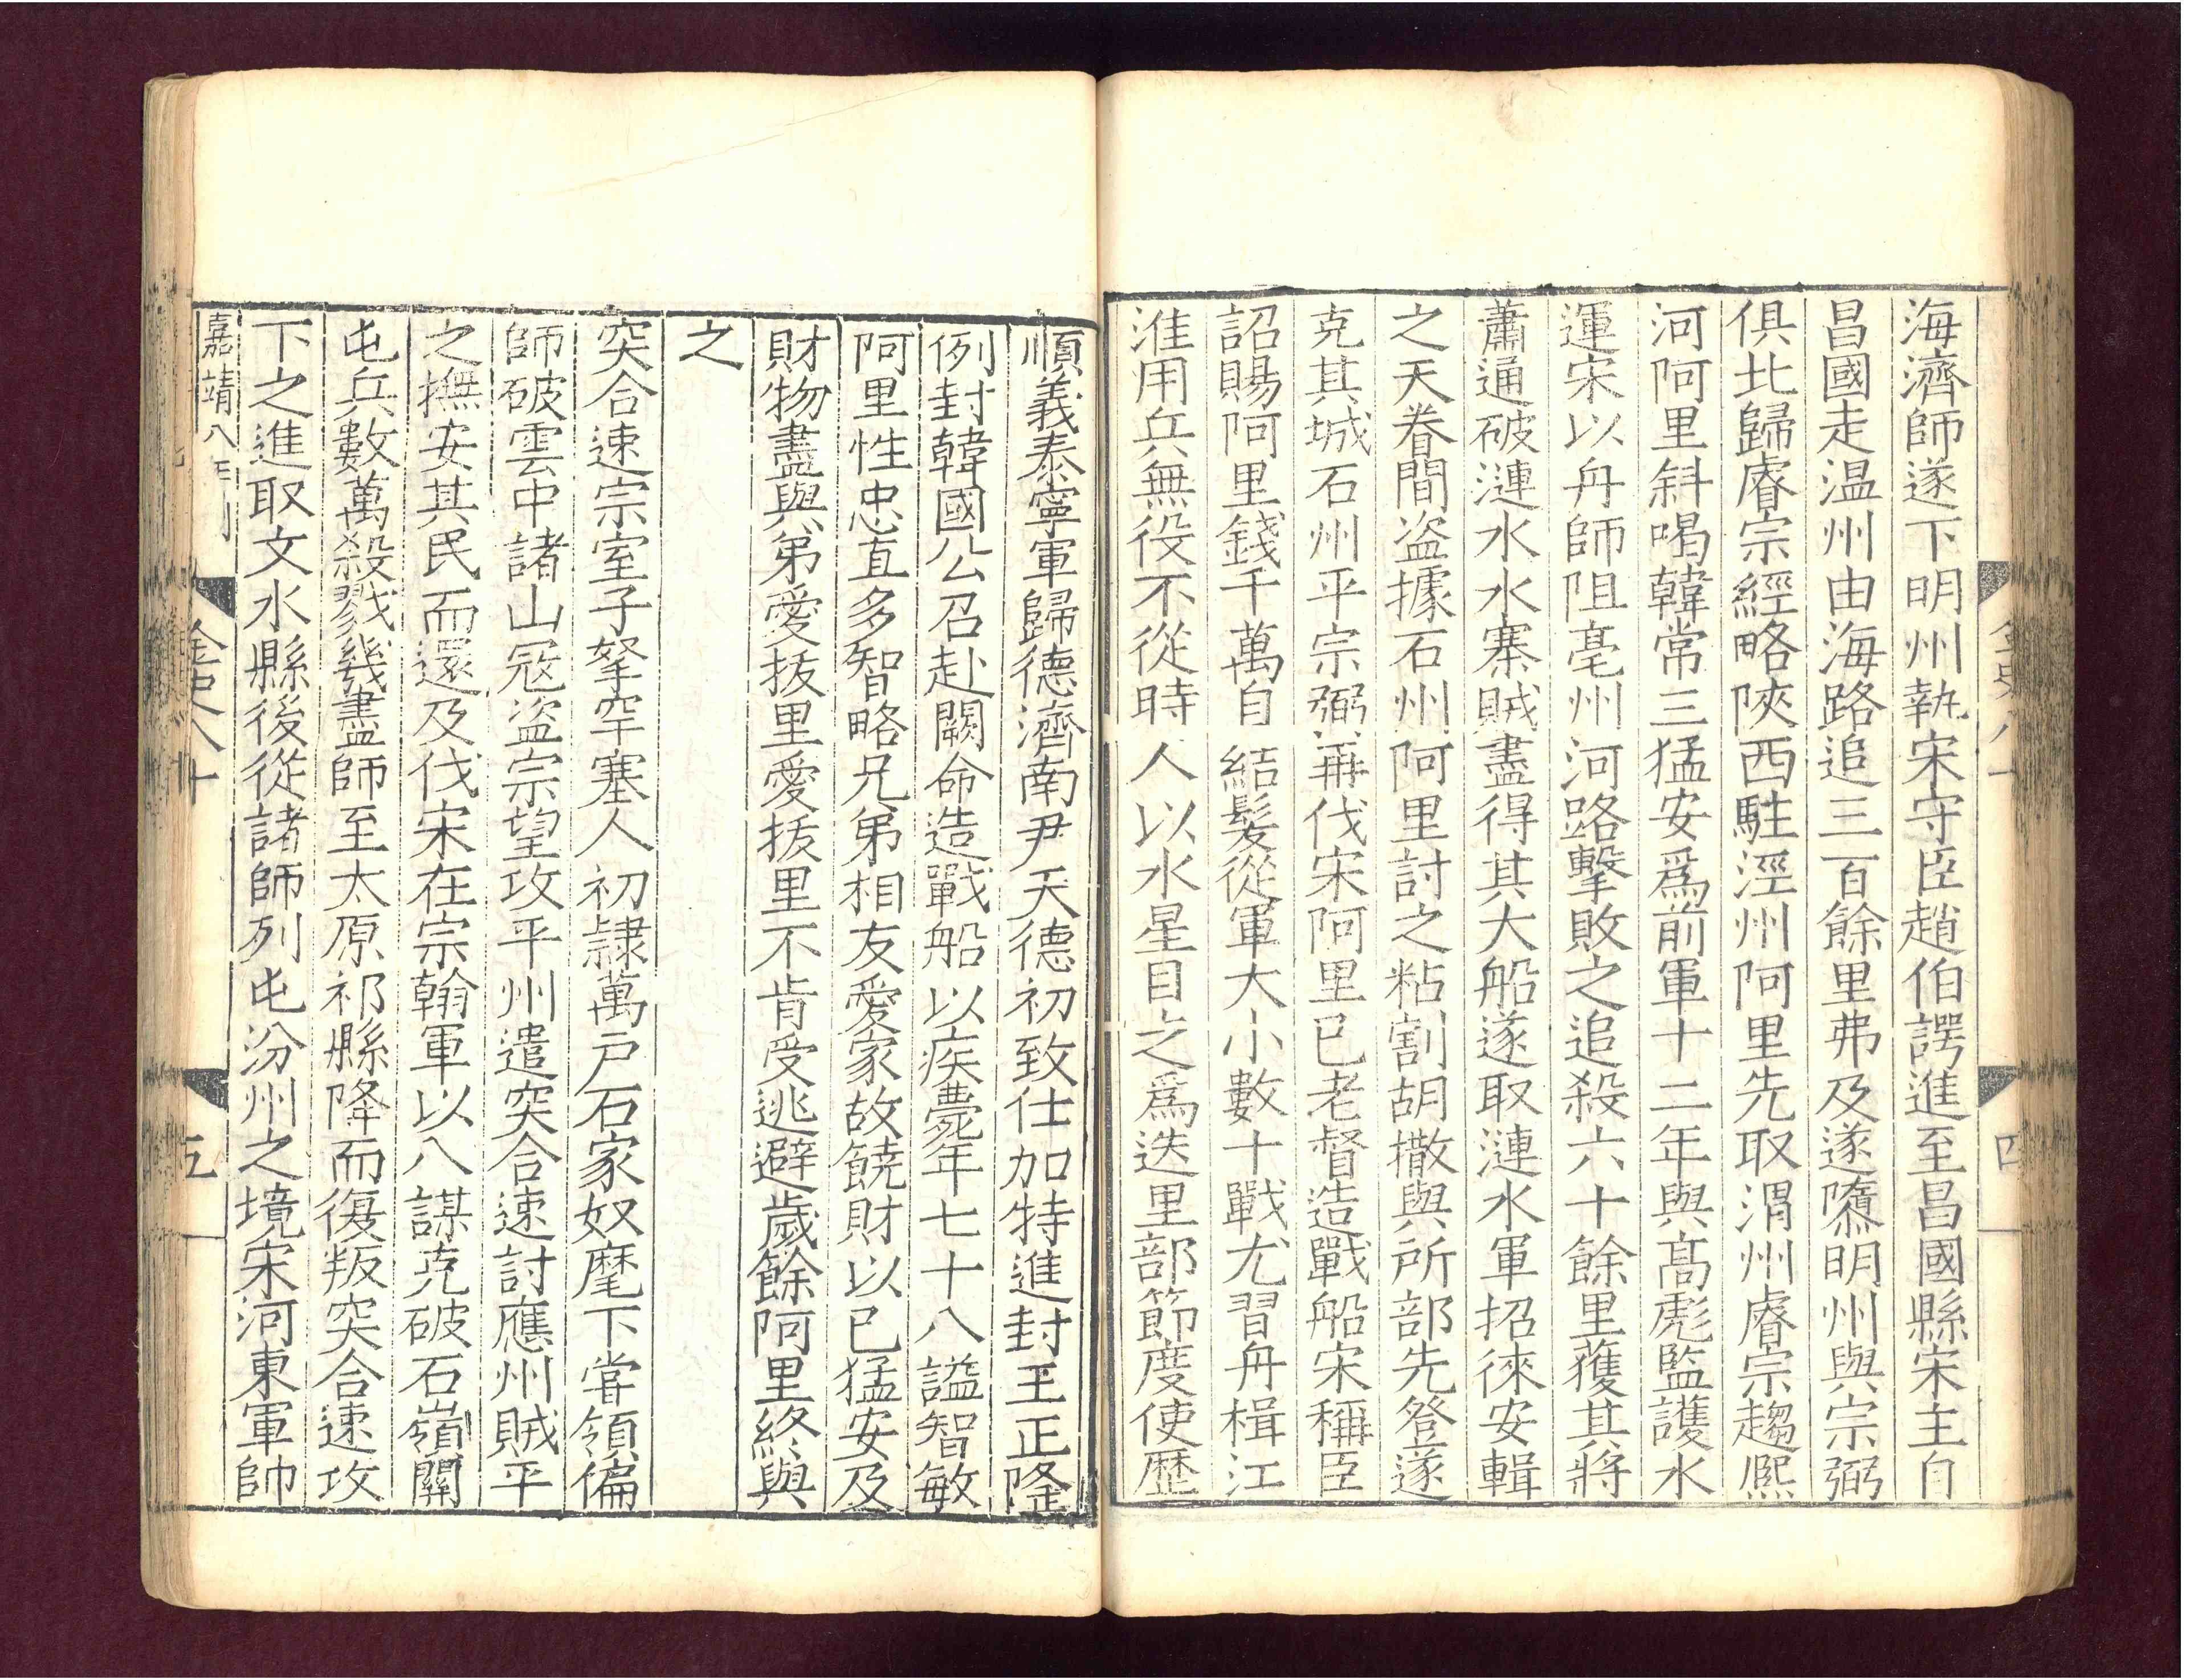 海濟師遂下明州執宋守臣趙伯諤進至昌國縣宋主自
昌國走温州由海路追三百餘里弗及遂隳明州與宗弼
俱北歸睿宗經略陝西駐涇州阿里先取渭州睿宗趨熈
河阿里斜喝韓常三猛安爲前軍十二年與髙彪監護水
運宋以舟師阻亳州河路擊敗之追殺六十餘里獲其將
蕭通破漣水水寨賊盡得其大船遂取漣水軍招徠安輯
之天眷間盗據石州阿里討之粘割胡撒與所部先登遂
克其城石州平宗弼再伐宋阿里已老督造戰船宋稱臣
詔賜阿里錢千萬自結髮從軍大小數十戰尤習舟楫江
淮用兵無役不從時人以水星目之爲迭里部節度使歷
順義泰寧軍歸德濟南尹天德初致仕加特進封王正隆
例封韓國公召赴闕命造戰船以疾薨年七十八謚智敏
阿里性忠直多智略兄弟相友愛家故饒財以已猛安及
財物盡與弟愛拔里愛拔里不肯受逃避歲餘阿里終與
之
突合速宗室子拏罕塞人初隷萬戸石家奴麾下嘗領偏
師破雲中諸山冦盗宗望攻平州遣突合速討應州賊平
之撫安其民而還及伐宋在宗翰軍以八謀克破石嶺關
屯兵數萬殺戮幾盡師至太原祁縣降而復叛突合速攻
下之進取文水縣後從諸師列屯汾州之境宋河東軍帥
嘉靖八年刊
金史八十
五
四